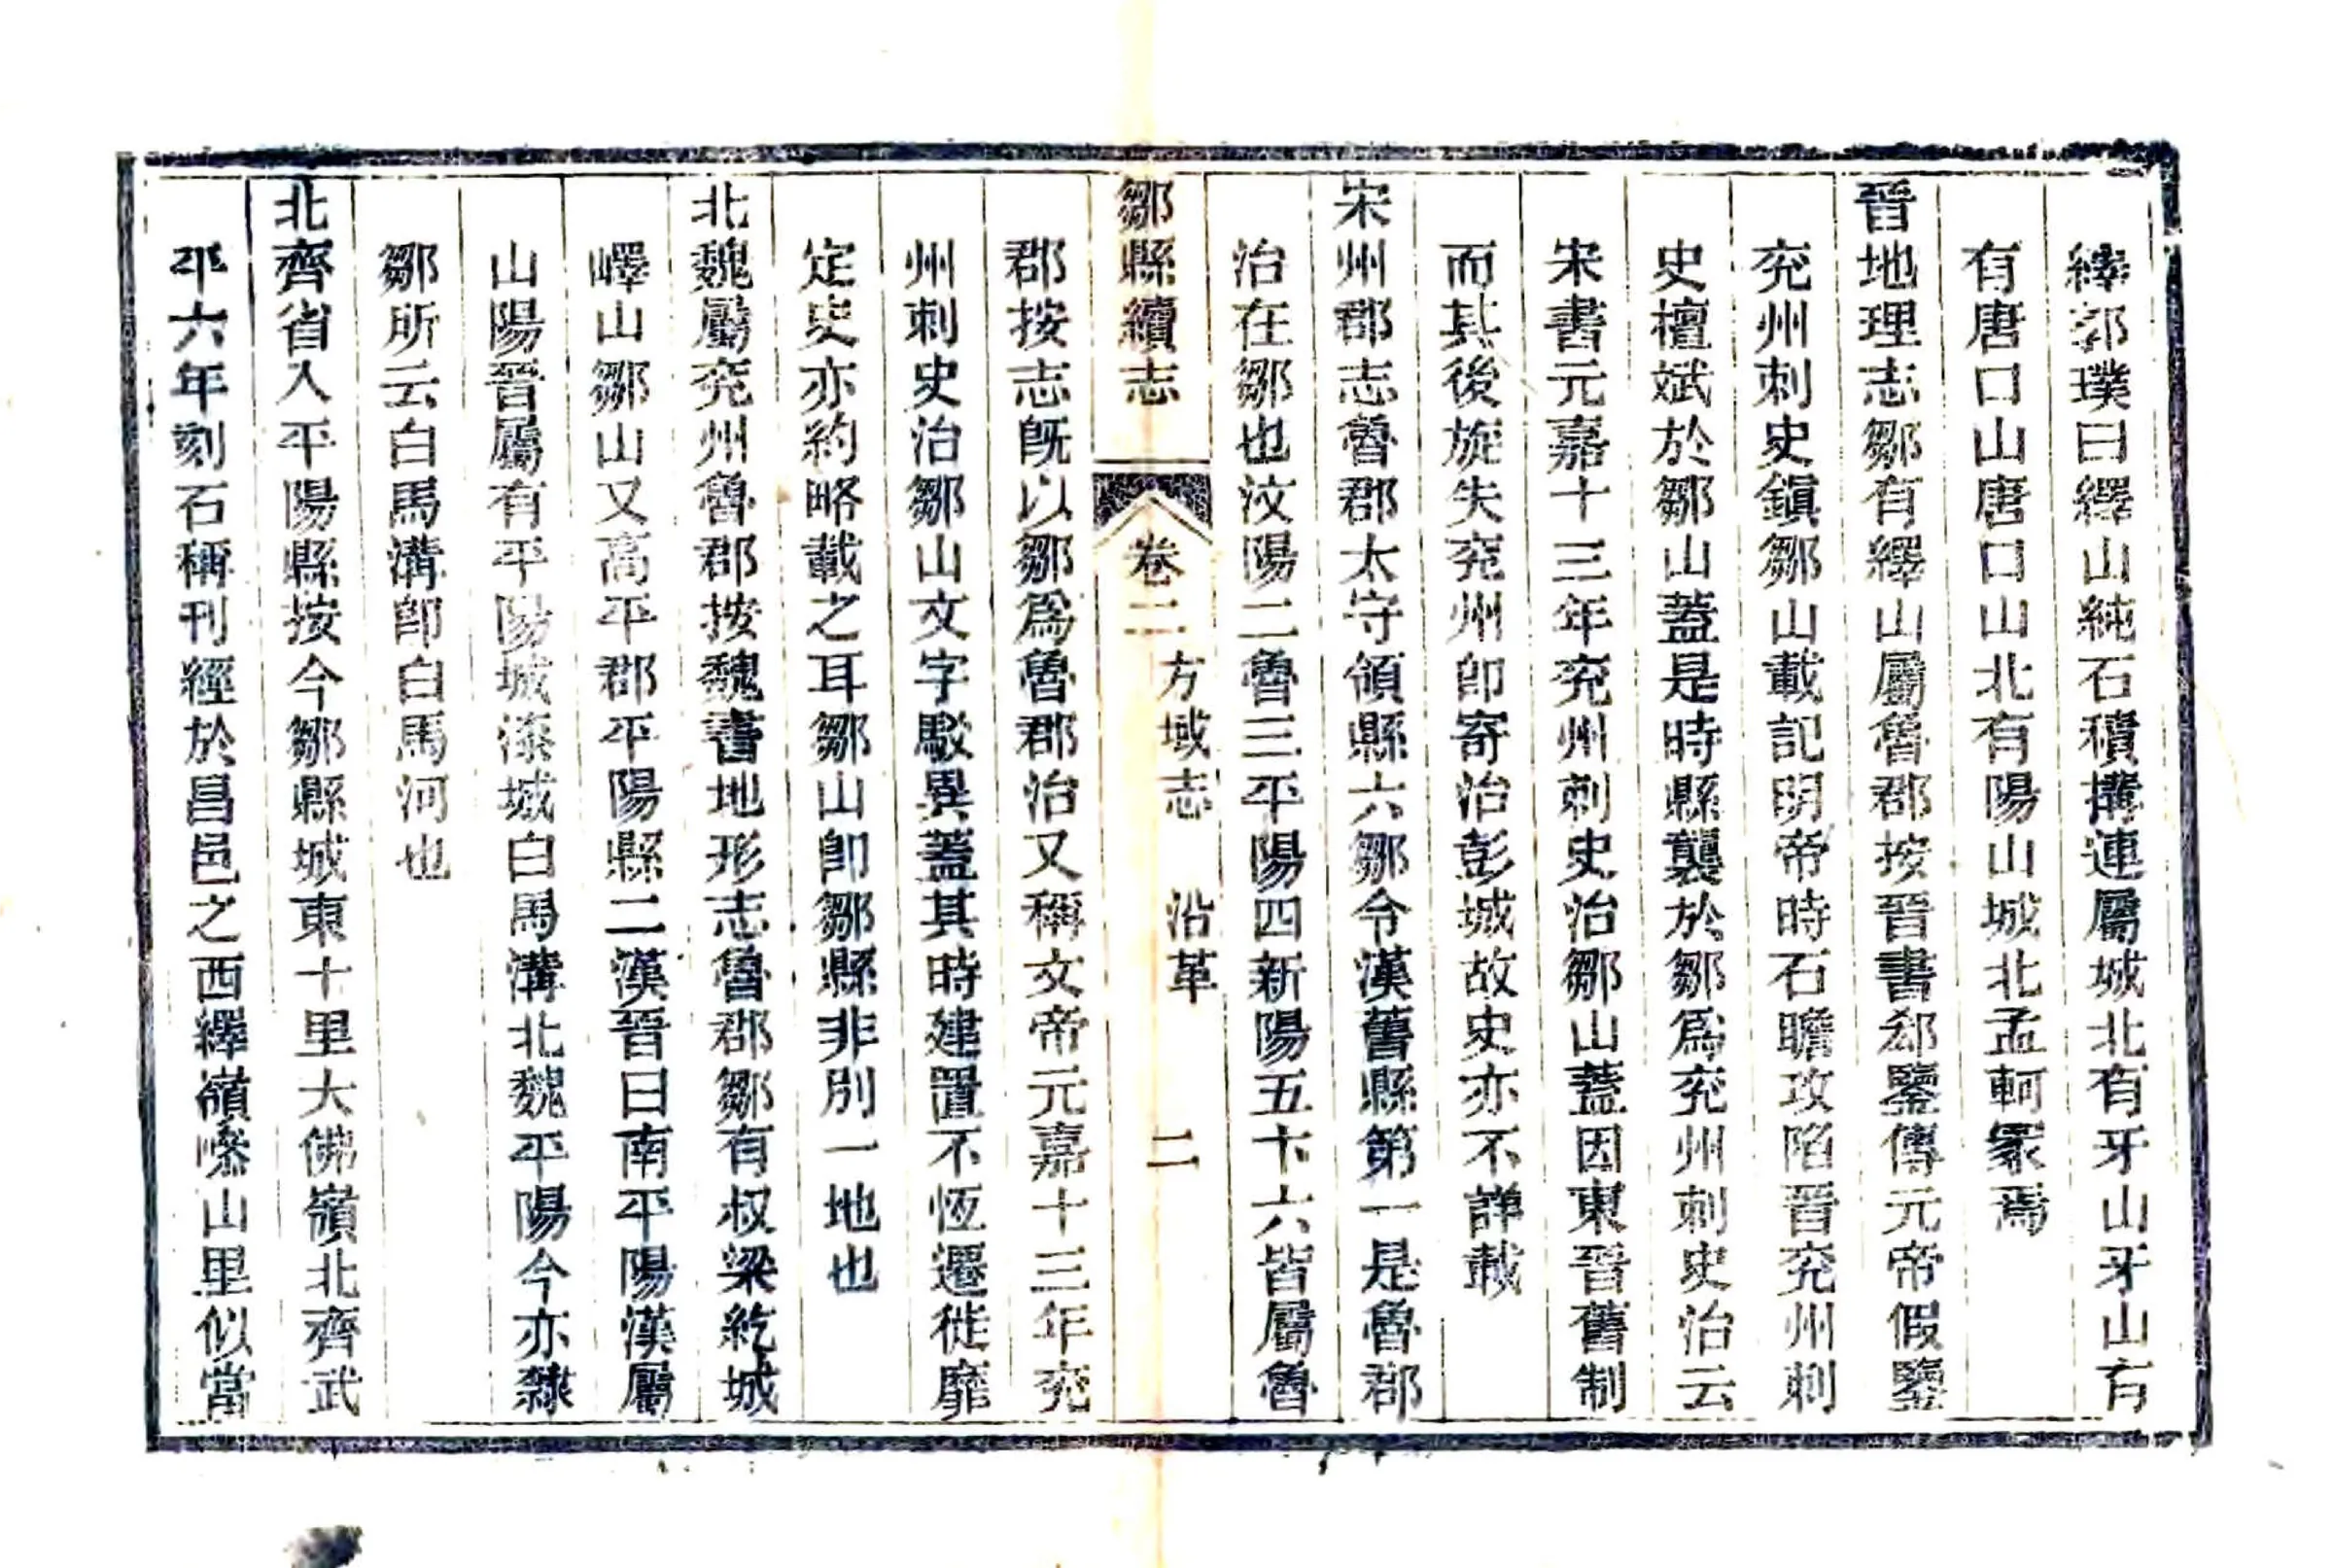 繹郭璞曰繹山純石積搆連屬城北有牙山牙山有
有唐口山唐口山北有陽山城北孟軻冢焉
晉地理志鄒有繹山屬魯郡按晉書郄鑒傳元帝假鑒
兖州刺史鎭鄒山載記明帝時石瞻攻陷晉兖州刺
史檀斌於鄒山蓋是時縣襲於鄒爲兖州刺史治云
宋書元嘉十三年兖州刺史治鄒山蓋因東晉舊制
而其後旋失兖州卽寄治彭城故史亦不詳載
宋州郡志魯郡太守領縣六鄒令漢舊縣第一是魯郡
治在鄒也汶陽二魯三平陽四新陽五卞六皆屬魯
鄒縣續志 卷二 方域志 沿革 二
郡按志旣以鄒爲魯郡治又稱文帝元嘉十三年兖
州刺史治鄒山文字駁異蓋其時建置不恆遷徙靡
定史亦約略載之耳鄒山卽鄒縣非別一地也
北魏屬兖州魯郡按魏書地形志魯郡鄒有叔梁紇城
嶧山鄒山又高平郡平陽縣二漢晉曰南平陽漢屬
山陽晉屬有平陽城漆城白馬溝北魏平陽今亦隸
鄒所云白馬溝卽白馬河也
北齊省入平陽縣按今鄒縣城東十里大佛嶺北齊武
平六年刻石稱刊經於昌邑之西繹嶺嵾山里似當